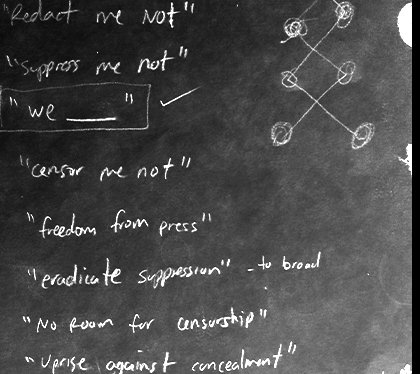 "Redact me Not"
"Suppress me not"
"we ____"
"censor me not"
"freedom from press"
"eradicate suppression" - to broad
"No Room for censurship"
"Uprise against concealment"